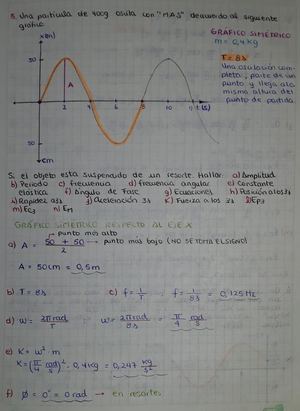 5. Una partícula de 400g oscila con "MAS" deacuerdo al siguiente
gráfico:
x(m)
GRÁFICO SIMÉTRICO
m = 0,4 kg
T = 8s
Una oscilación com-
pleta, parte de un
punto y llega a la
misma altura del
punto de partida.
50
A
2 4 6 8 10 t(s)
50
-cm
Si el objeto esta suspendido de un resorte. Hallar: a) Amplitud
b) Periodo c) Frecuencia d) Frecuencia angular e) Constante
elástica f) Ángulo de Fase g) Ecuaciones h) Posición a los 3s
i) Rapidez a 3s j) Aceleración 3s k) Fuerza a los 3s l) EP3
m) Ec3 n) EM
GRÁFICO SIMÉTRICO RESPECTO AL EJE X
punto más alto
a) A = 50 + 50 / 2 → punto más bajo (NO SE TOMA EL SIGNO)
A = 50cm = 0,5m
b) T = 8s c) f = 1/T f = 1/8s = 0,125 Hz
d) w = 2π rad / T w = 2π rad / 8s = π/4 rad/s
e) K = w² m
K = (π/4 rad/s)² · 0,4kg = 0,247 kg/s²
f) Ø = 0° = 0 rad → en resortes